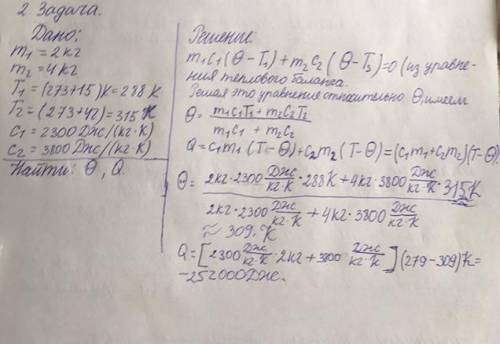 2. Задача.
Дано:
m₁ = 2 кг
m₂ = 4 кг
T₁ = (273+15)K = 288 K
T₂ = (273+42) = 315 K
c₁ = 2300 Дж/(кг·К)
c₂ = 3800 Дж/(кг·К)
Найти: Θ, Q.
Решение
m₁c₁(Θ − T₁) + m₂c₂(Θ − T₂) = 0 (из уравне-
ния теплового баланса.
Решая это уравнения относительно Θ, имеем
Θ = (m₁c₁T₁ + m₂c₂T₂) / (m₁c₁ + m₂c₂)
Q = c₁m₁(T − Θ) + c₂m₂(T − Θ) = (c₁m₁ + c₂m₂)(T − Θ)
Θ = 2кг·2300 Дж/кг·К ·288К + 4кг·3800 Дж/кг·К ·315К
2кг·2300 Дж/кг·К + 4кг·3800 Дж/кг·К
≈ 309. К
Q = [2300 Дж/кг·К ·2кг + 3800 Дж/кг·К](279−309)К =
−252000Дж.